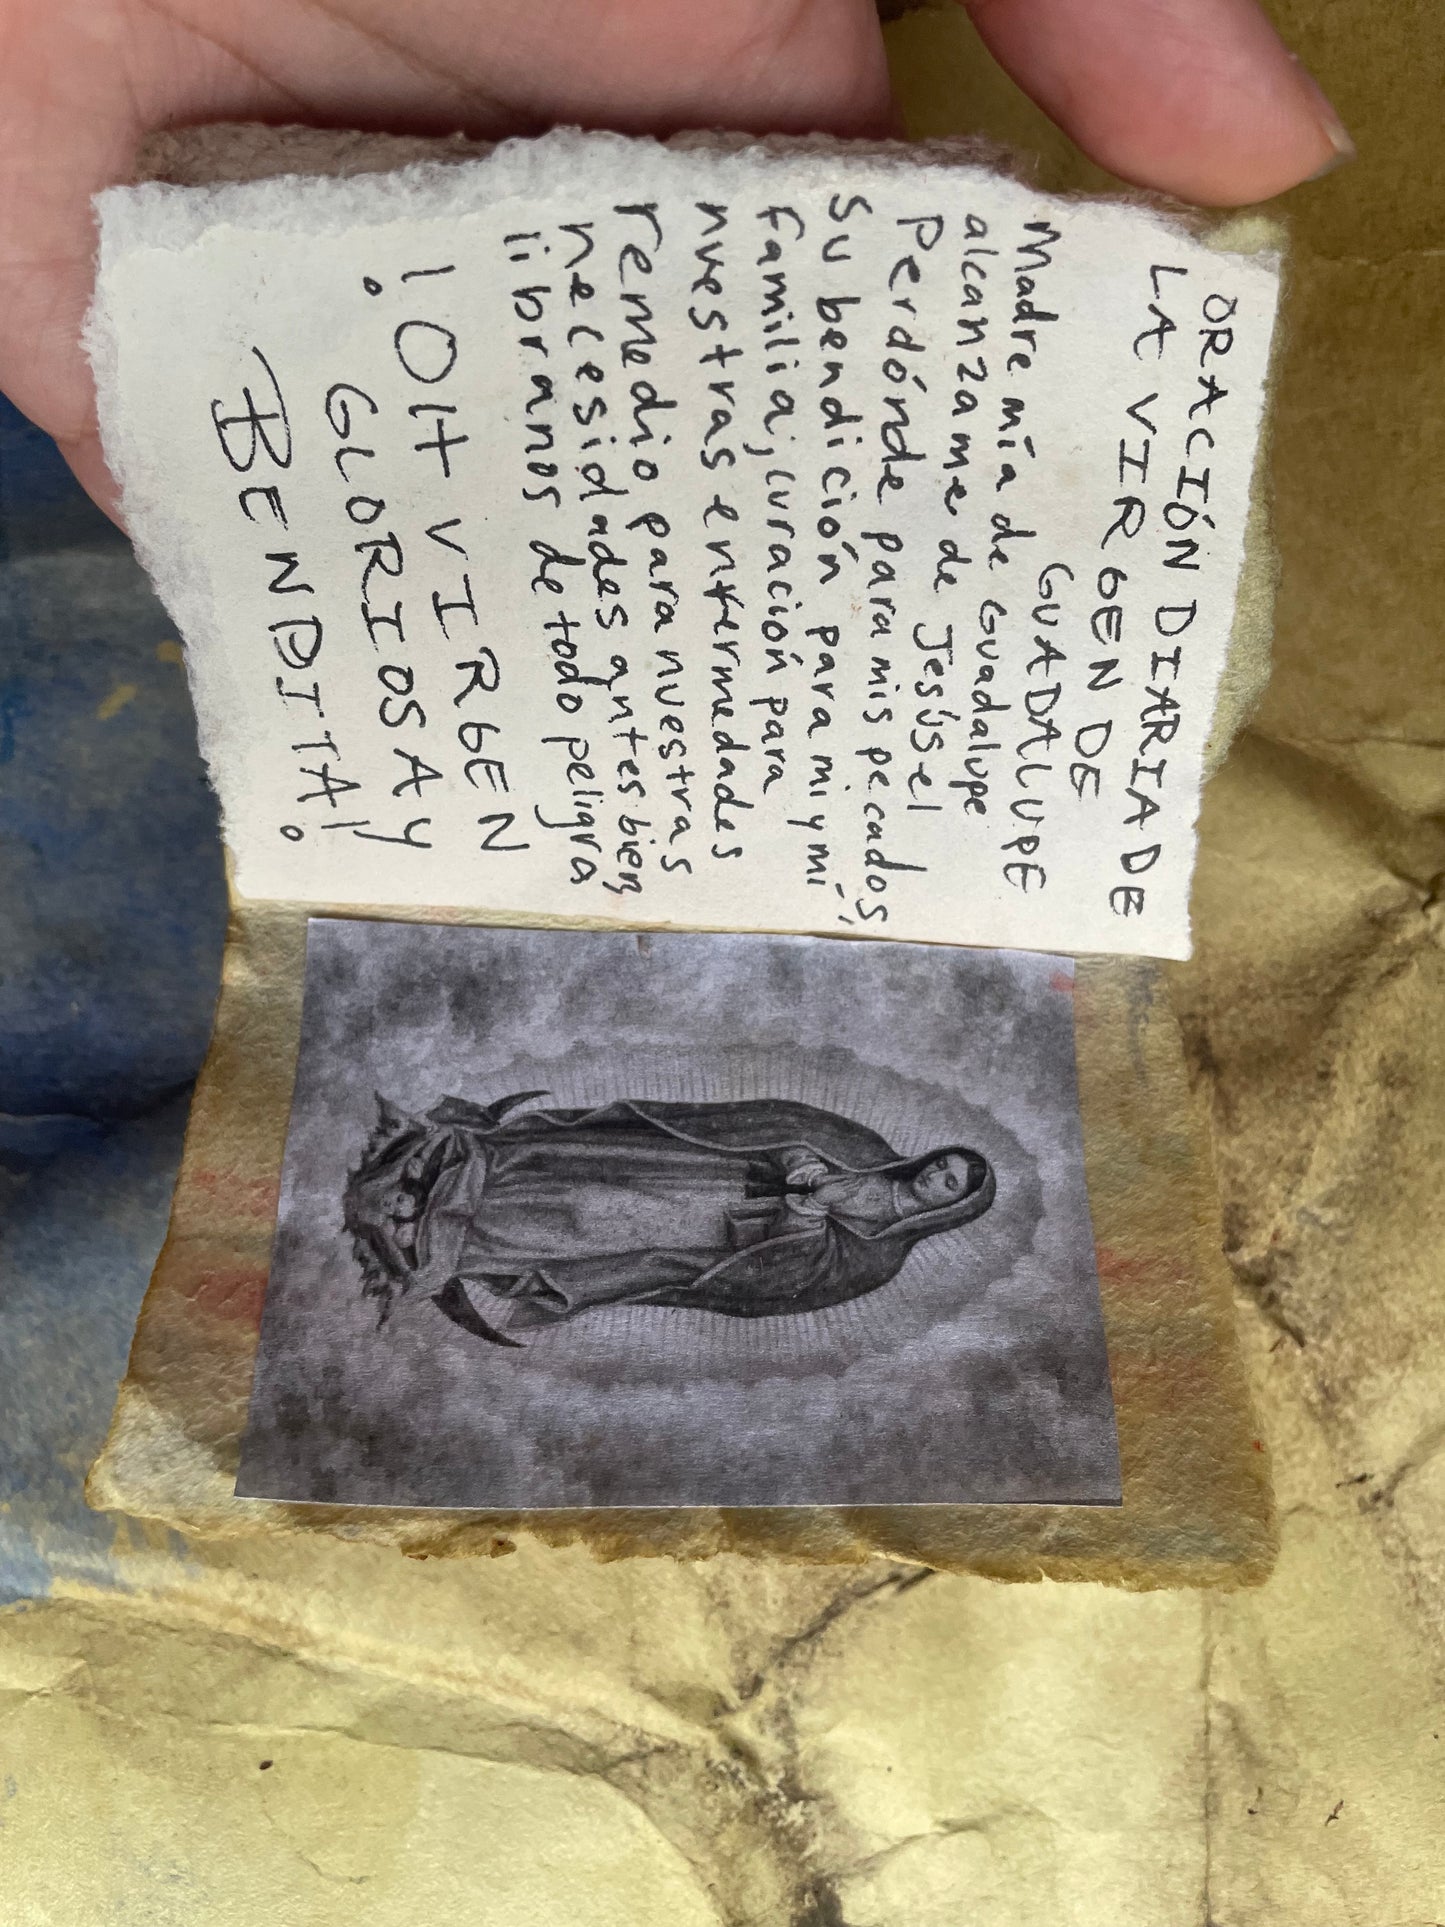 ORACIÓN DIARIA DE
LA VIRGEN DE
GUADALUPE
Madre mía de Guadalupe
alcanzame de Jesús el
Perdónde para mis pecados,
Su bendición para mi y mí
familia, curación para
nuestras enfermedades
remedio para nuestras
necesidades antes bien,
libranos de todo peligra
¡OH VIRGEN
GLORIOSA Y
BENDITA!